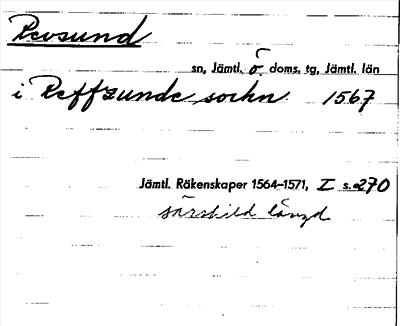 Revsund
sn, Jämtl. ö. doms. tg, Jämtl. län
i Reffzunde sockn 1567
Jämtl. Räkenskaper 1564–1571, I s. 270
särskild längd